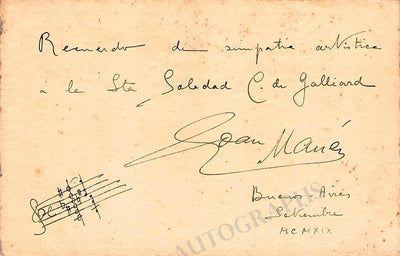 Recuerdo de simpatia artística
a la Sta Soledad C. de Galliard
Joan Manén
Buenos Aires
Setiembre
MCMXIX
AUTOGRAPHS